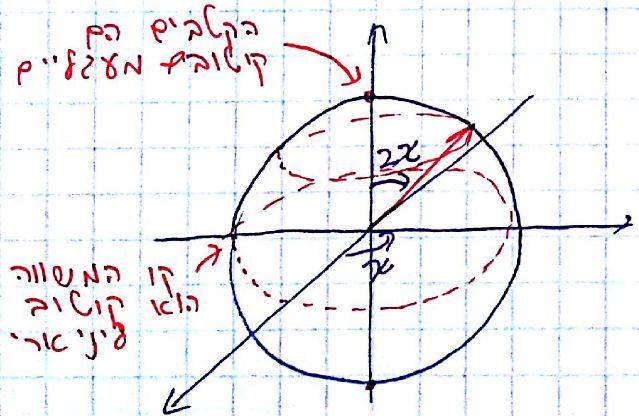 הקטבים הם
קיטובים מעגליים
2χ
קו המשווה
הוא קוטוב
ליניארי